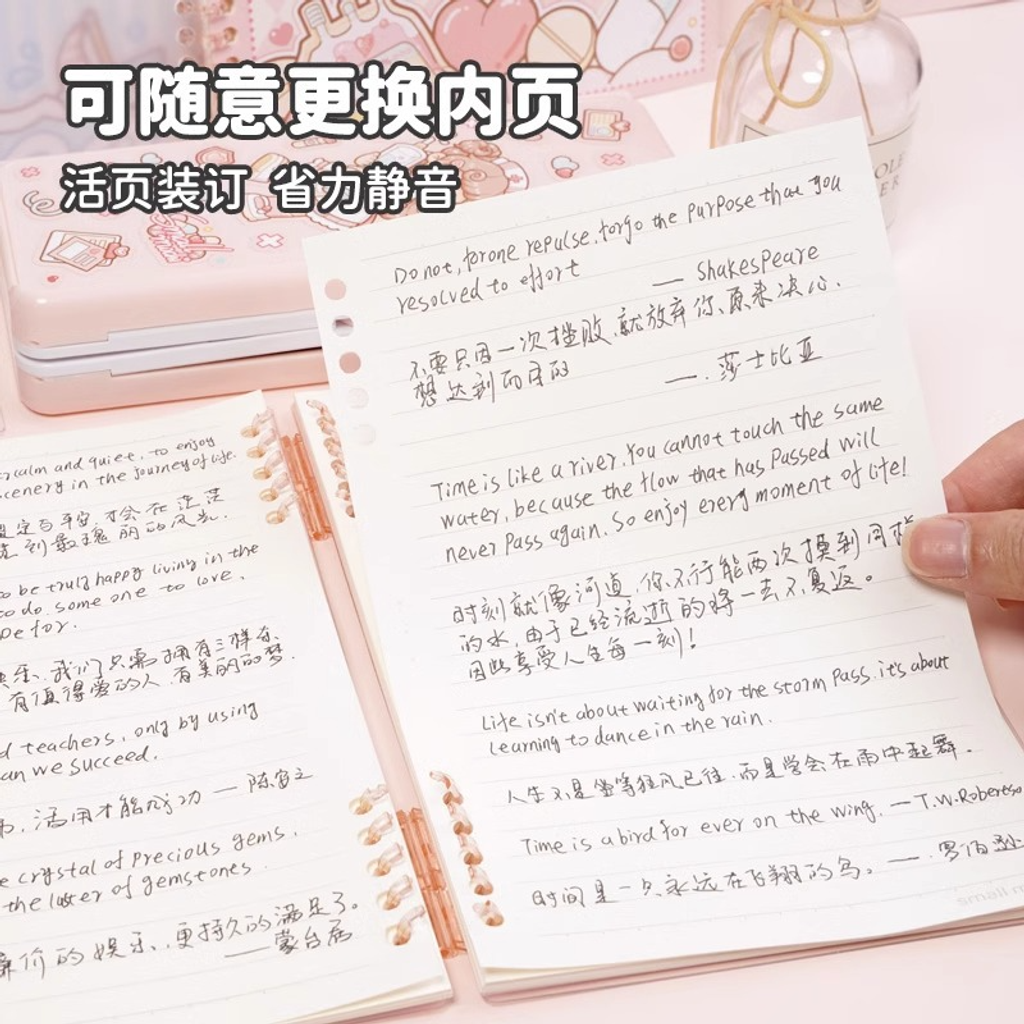 可随意更换内页
活页装订 省力静音
Do not, for one repulse, forgo the purpose that you
resolved to effort
— Shakespeare
不要只因一次挫败,就放弃你、原来决心、
想达到而目的
—.莎士比亚
Time is like a river. You cannot touch the same
water, because the flow that has passed will
never pass again. So enjoy every moment of life!
时刻就像河道,你不行能两次摸到同
的水,由于已经流逝的将一去不复返。
因此享受人生每一刻!
Life isn't about waiting for the storm pass. it's about
learning to dance in the rain.
人生不是坐等狂风已往,而是学会在雨中起舞。
Time is a bird for ever on the wing. — T.W.Roberts
时间是一只永远在飞翔的鸟。—.罗伯逊
calm and quiet. to enjoy
scenery in the journey of life.
定与平安,才会在
到最瑰丽的风光.
o be truly happy living in the
to do. some one to love.
pe for.
乐、我们只需拥有三样东
有值得爱的人,有美丽的梦.
d teachers, only by using
an we succeed.
活用才能成功 — 陈
e crystal of precious gems.
the luster of gemstones.
价的娱乐、更持久的满足了。
— 蒙台